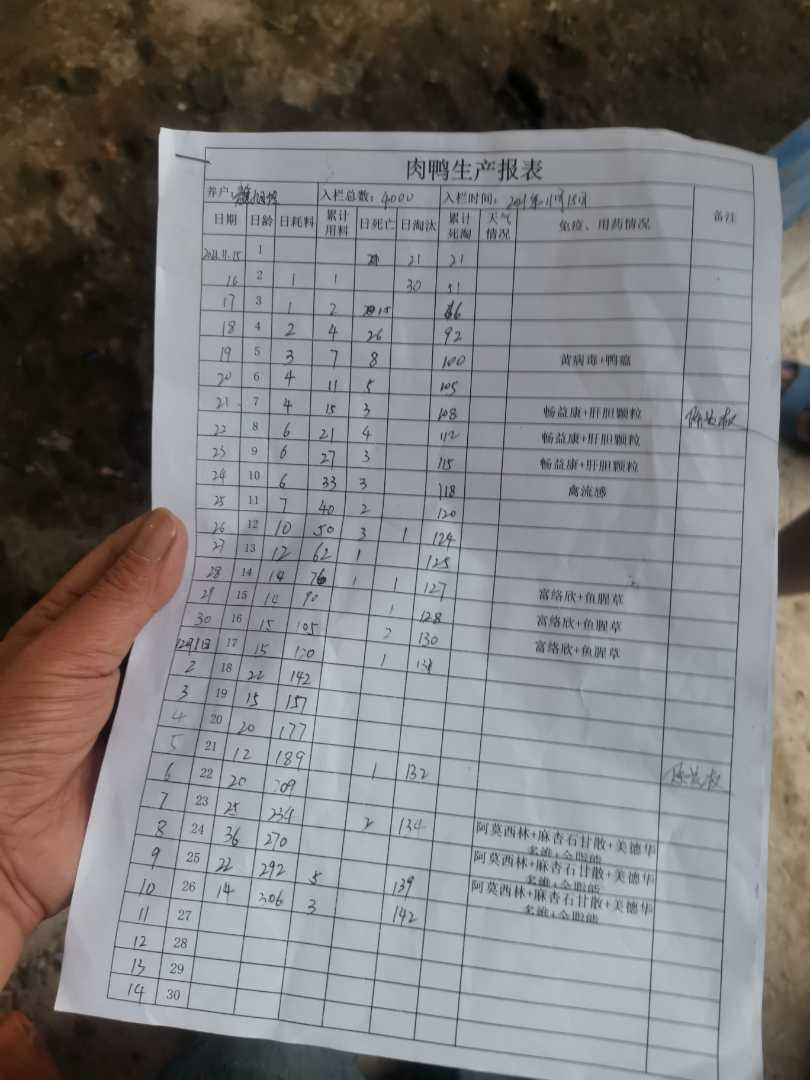 肉鸭生产报表
养户: 入栏总数: 4000 入栏时间: 2021年11月15日
日期 日龄 日耗料 累计用料 日死亡 日淘汰 累计死淘 天气情况 免疫、用药情况 备注
2021.11.15 1 21 21
16 2 1 1 30 51
17 3 1 2 15 66
18 4 2 4 26 92
19 5 3 7 8 100 黄病毒+鸭瘟
20 6 4 11 5 105
21 7 4 15 3 108 畅益康+肝胆颗粒
22 8 6 21 4 112 畅益康+肝胆颗粒
23 9 6 27 3 115 畅益康+肝胆颗粒
24 10 6 33 3 118 禽流感
25 11 7 40 2 120
26 12 10 50 3 1 124
27 13 12 62 1 125
28 14 14 76 1 1 127
29 15 14 90 1 128 富络欣+鱼腥草
30 16 15 105 2 130 富络欣+鱼腥草
12月1日 17 15 120 1 131 富络欣+鱼腥草
2 18 22 142
3 19 15 157
4 20 20 177
5 21 12 189 1 132
6 22 20 209
7 23 25 234 2 134
8 24 36 270 阿莫西林+麻杏石甘散+美德华
9 25 22 292 5 139 阿莫西林+麻杏石甘散+美德华
10 26 14 306 3 142 阿莫西林+麻杏石甘散+美德华
11 27
12 28
13 29
14 30